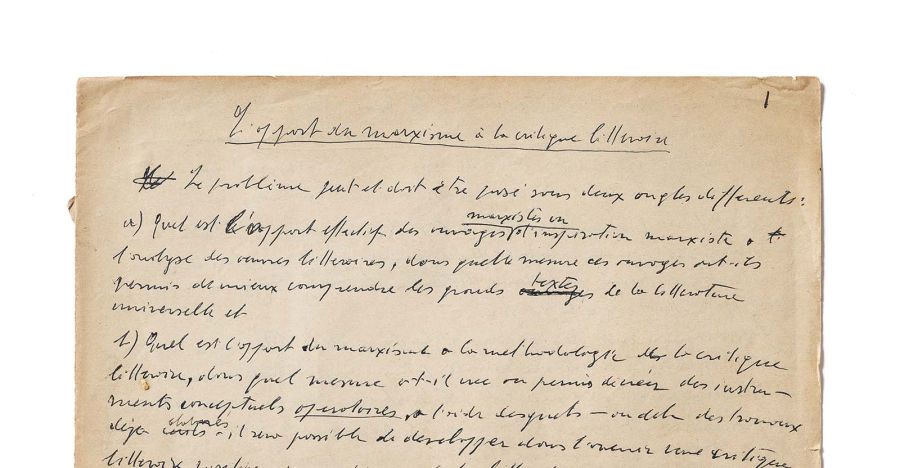 1
L'apport du marxisme à la critique litteraire
Le problème peut et doit être posé sous deux angles differents :
marxistes ou
a) Quel est l'apport effectif des ouvrages d'inspiration marxiste a
l'analyse des œuvres litteraires, dans quelle mesure ces ouvrages ont-ils
permis de mieux comprendre les grands textes de la litterature
universelle et
b) Quel est l'apport du marxisme a la methodologie de la critique
litteraire, dans quel mesure a-t-il cree ou permis de créer des instru-
ments conceptuels operatoires, a l'aide desquels – au dela des travaux
elabores
deja – il sera possible de developper dans l'avenir une critique